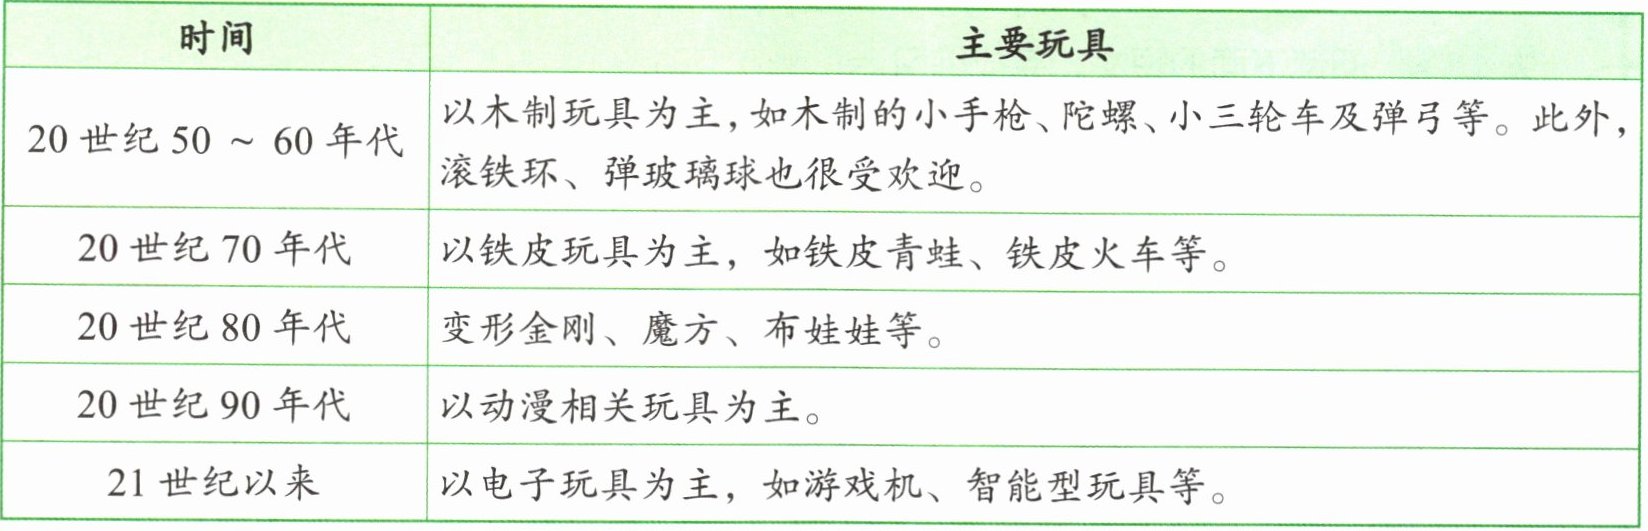 时间
主要玩具
20 世纪 50 ～ 60 年代
以木制玩具为主，如木制的小手枪、陀螺、小三轮车及弹弓等。此外，
滚铁环、弹玻璃球也很受欢迎。
20 世纪 70 年代
以铁皮玩具为主，如铁皮青蛙、铁皮火车等。
20 世纪 80 年代
变形金刚、魔方、布娃娃等。
20 世纪 90 年代
以动漫相关玩具为主。
21 世纪以来
以电子玩具为主，如游戏机、智能型玩具等。